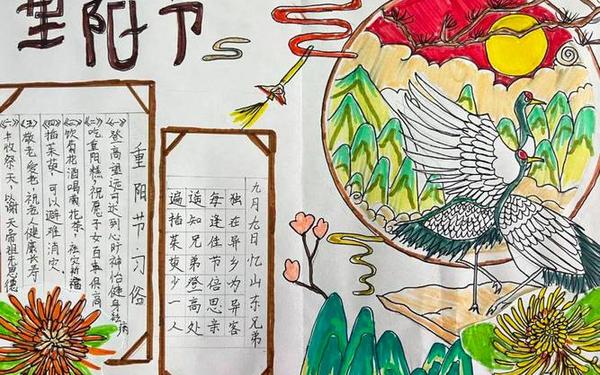 重阳节
重阳节习俗
(一)登高望远可达到心旷神怡健身祛病
(二)吃重阳糕,祝愿子女百事俱高
(三)饮菊花酒喝菊花茶,祛灾祈福
(四)插茱萸,可以避难消灾。
(五)敬老爱老,祝老人健康长寿
(六)丰收祭天,以谢天帝祖先恩德
九月九日忆山东兄弟
独在异乡为异客
每逢佳节倍思亲
遥知兄弟登高处
遍插茱萸少一人